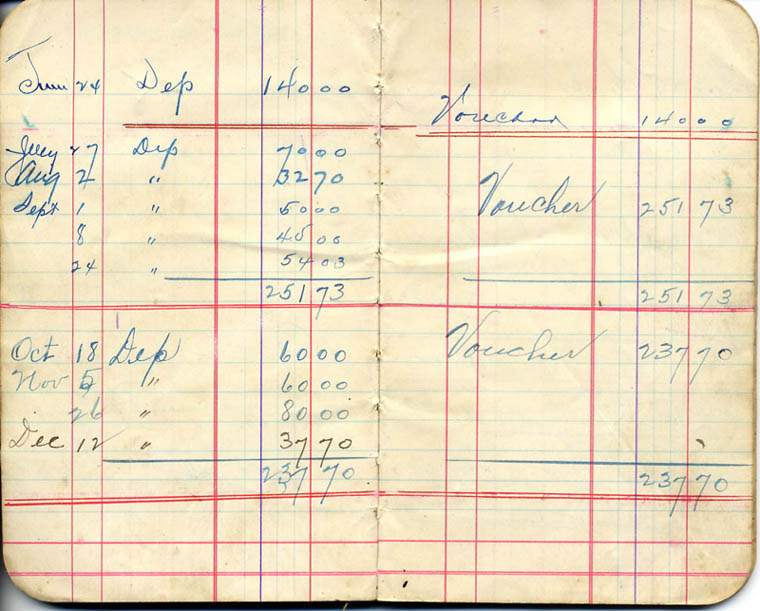 June 24 Dep 140 00
July 27 Dep 70 00
Aug 2 " 32 70
Sept 1 " 50 00
8 " 45 00
24 " 54 03
251 73
Oct 18 Dep 60 00
Nov 5 " 60 00
26 " 80 00
Dec 12 " 37 70
237 70
Voucher 140 00
Voucher 251 73
251 73
Voucher 237 70
237 70